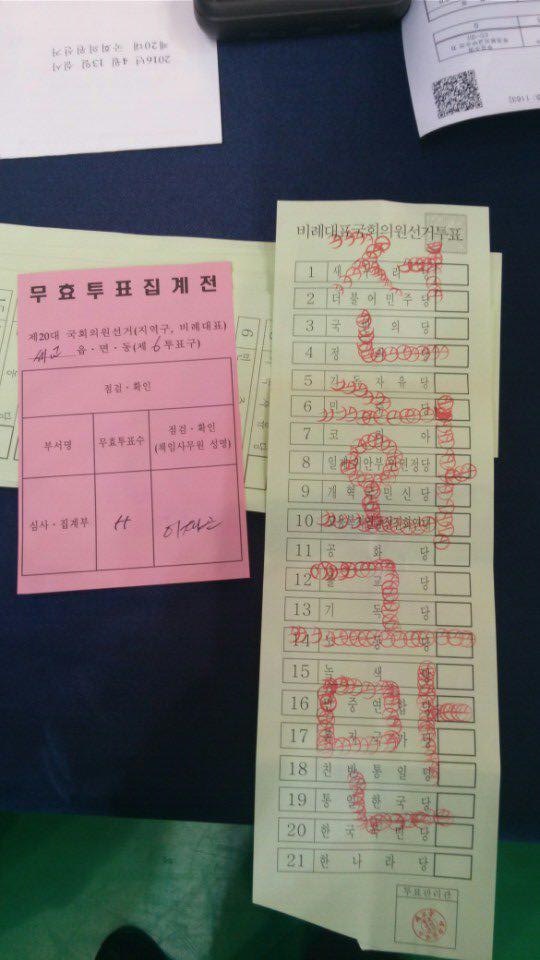 2016년 4월 13일 실시
제20대 국회의원선거
무효투표집계전
제20대 국회의원선거(지역구, 비례대표)
읍·면·동(제 6 투표구)
점검·확인
부서명
무효투표수
점검·확인
(책임사무원 성명)
심사·집계부
비례대표국회의원선거투표
1 새누리당
2 더불어민주당
3 국민의당
4 정의당
5 기독자유당
6 민주당
7 코리아
8 일제위안부인권정당
9 개혁국민신당
10
11 공화당
12 불교당
13 기독당
14 노동당
15 녹색당
16 민중연합당
17 복지국가당
18 친반통일당
19 통일한국당
20 한국국민당
21 한나라당
투표관리관